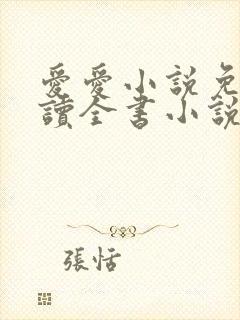 愛愛小說免
讀全書小說
張恬